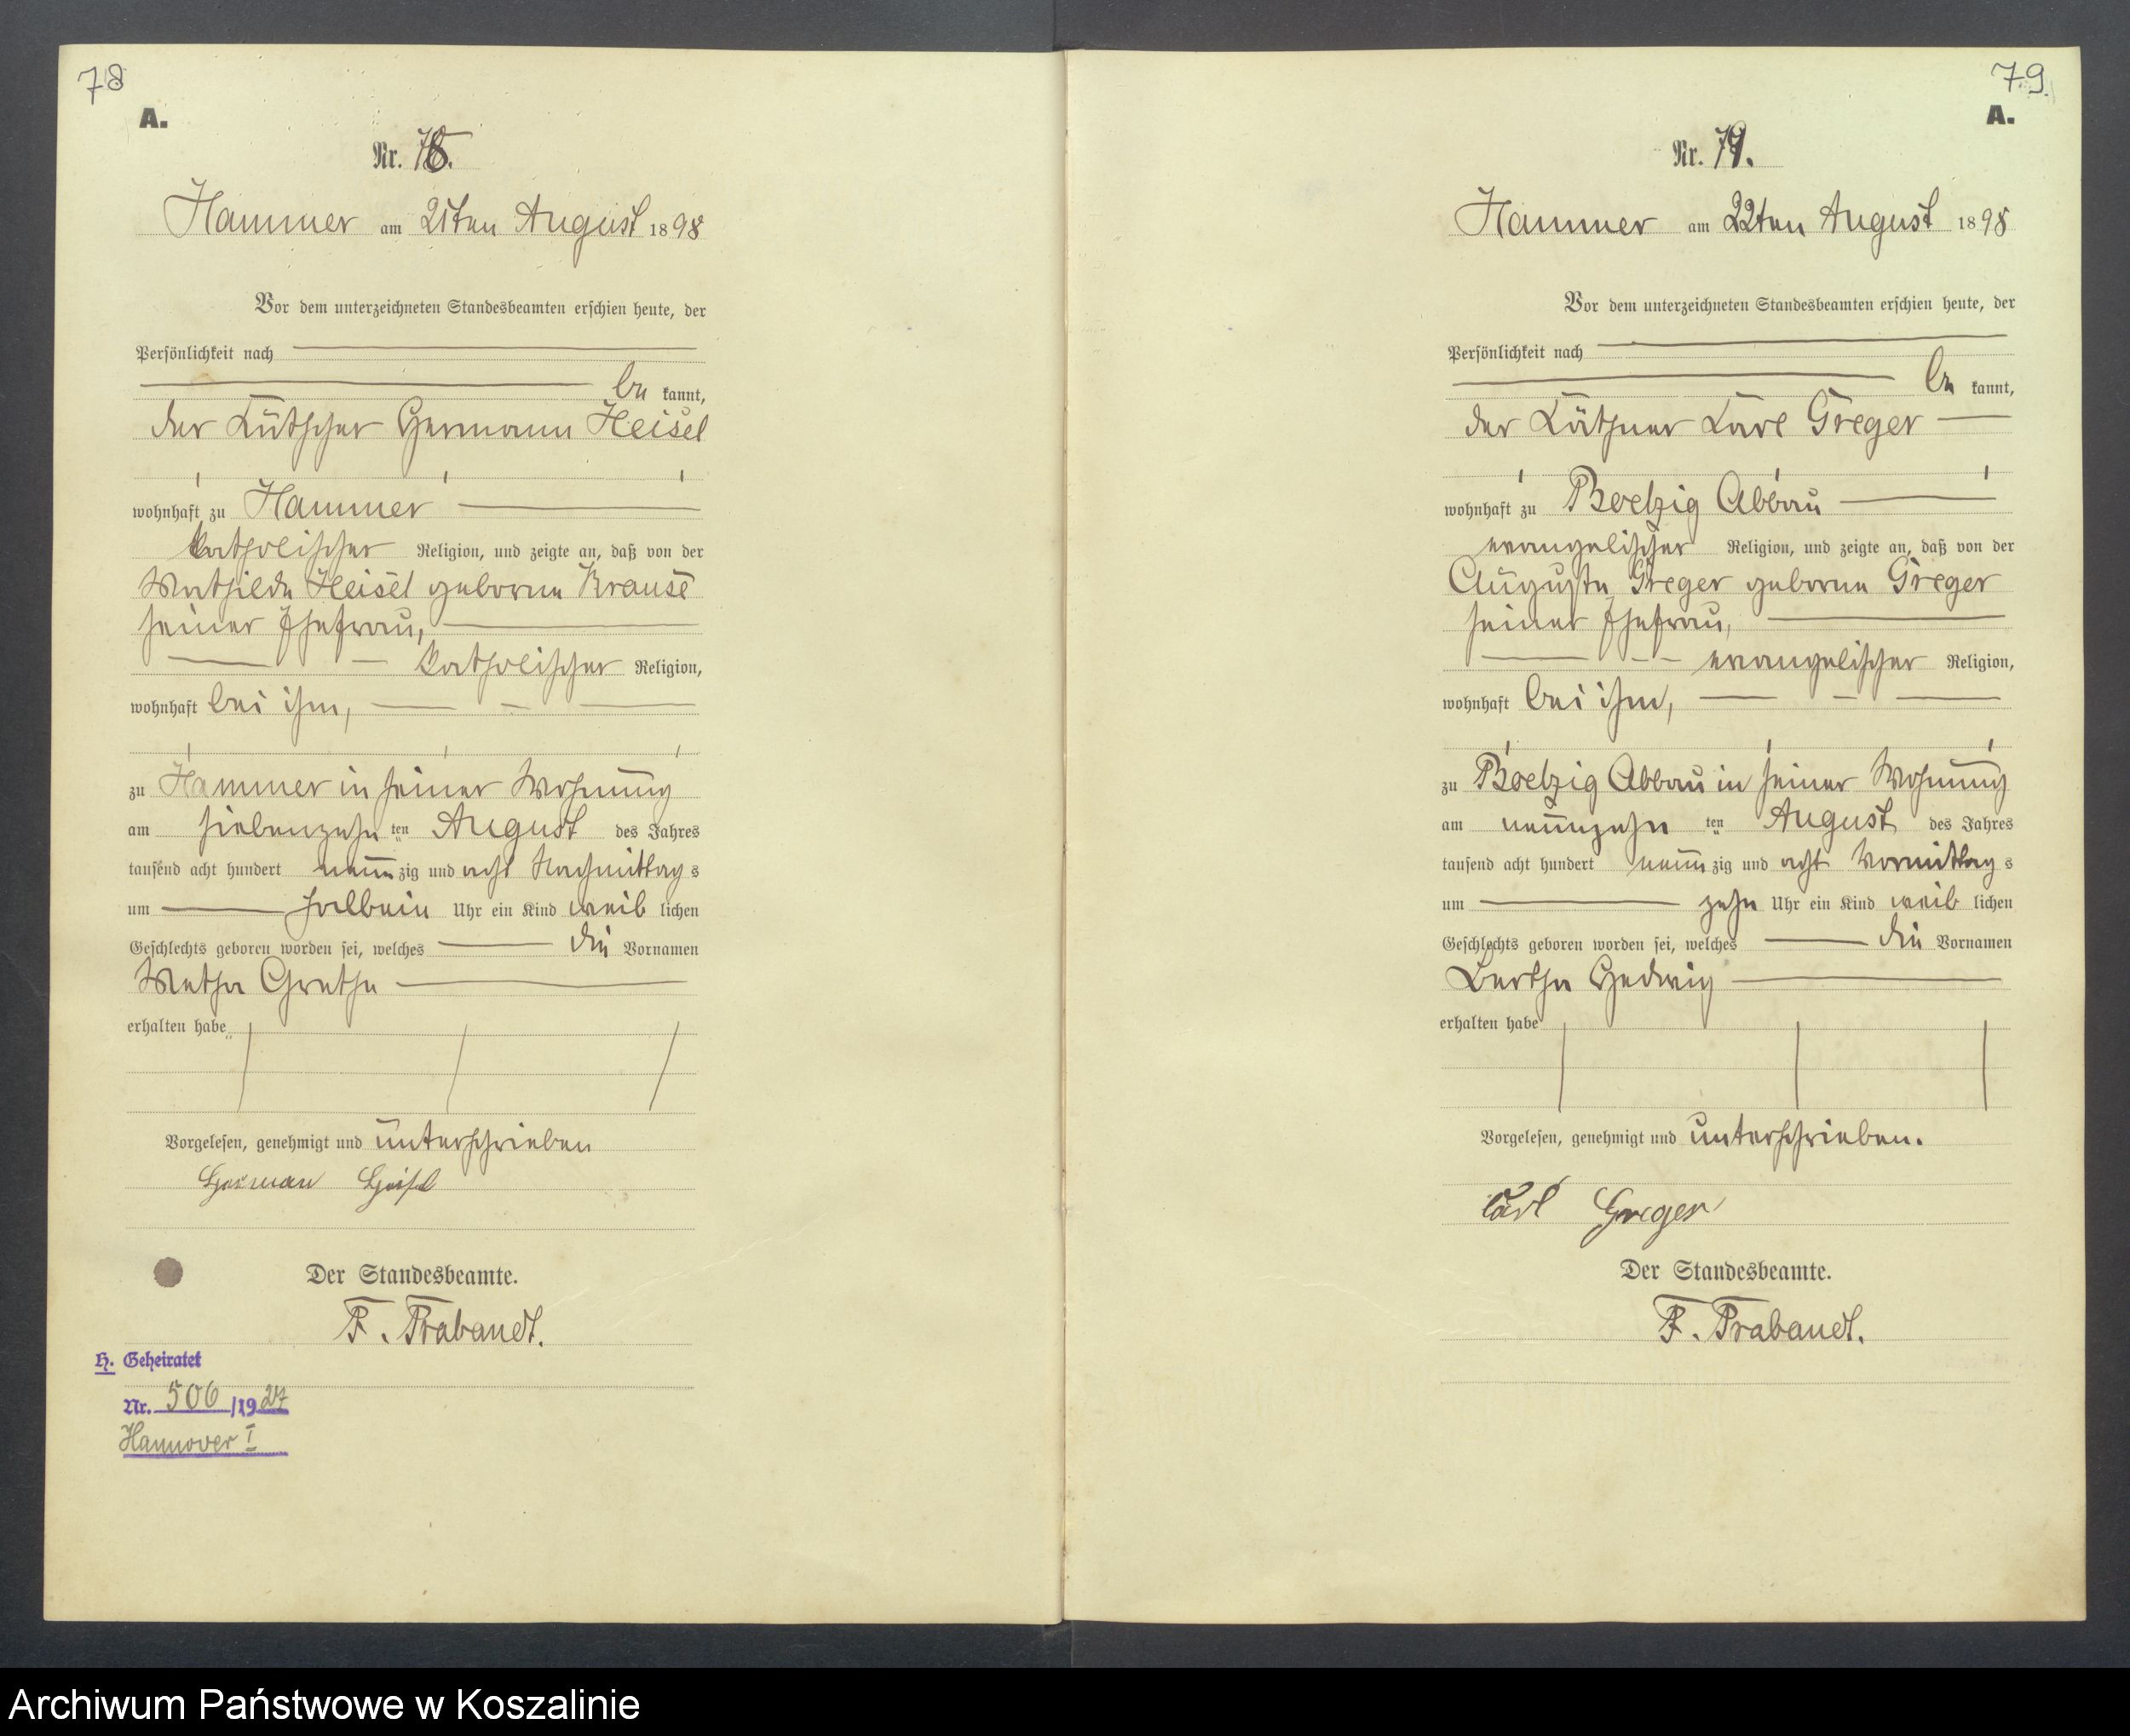 78
A.
Nr. 78.
Hammer am 21ten August 1898
Vor dem unterzeichneten Standesbeamten erschien heute, der
Persönlichkeit nach
be kannt,
der Kutscher Hermann Heisel
wohnhaft zu Hammer
katholischer Religion, und zeigte an, daß von der
Mathilde Heisel geborne Krause
seiner Ehefrau,
katholischer Religion,
wohnhaft bei ihm,
zu Hammer in seiner Wohnung
am siebenzehn ten August des Jahres
tausend acht hundert neun zig und acht Nachmittag s
um halbein Uhr ein Kind weib lichen
Geschlechts geboren worden sei, welches die Vornamen
Metha Grethe
erhalten habe
Vorgelesen, genehmigt und unterschrieben
Herman Heisel
Der Standesbeamte.
F. Prabandt.
H. Geheiratet
Nr. 506 /1927
Hannover I
79.
A.
Nr. 79.
Hammer am 22ten August 1898
Vor dem unterzeichneten Standesbeamten erschien heute, der
Persönlichkeit nach
be kannt,
der Käthner Karl Greger
wohnhaft zu Boelzig Abbau
evangelischer Religion, und zeigte an, daß von der
Auguste Greger geborne Greger
seiner Ehefrau,
evangelischer Religion,
wohnhaft bei ihm,
zu Boelzig Abbau in seiner Wohnung
am neunzehn ten August des Jahres
tausend acht hundert neun zig und acht Vormittag s
um zehn Uhr ein Kind weib lichen
Geschlechts geboren worden sei, welches die Vornamen
Bertha Hedwig
erhalten habe
Vorgelesen, genehmigt und unterschrieben.
Carl Greger
Der Standesbeamte.
F. Prabandt.
Archiwum Państwowe w Koszalinie